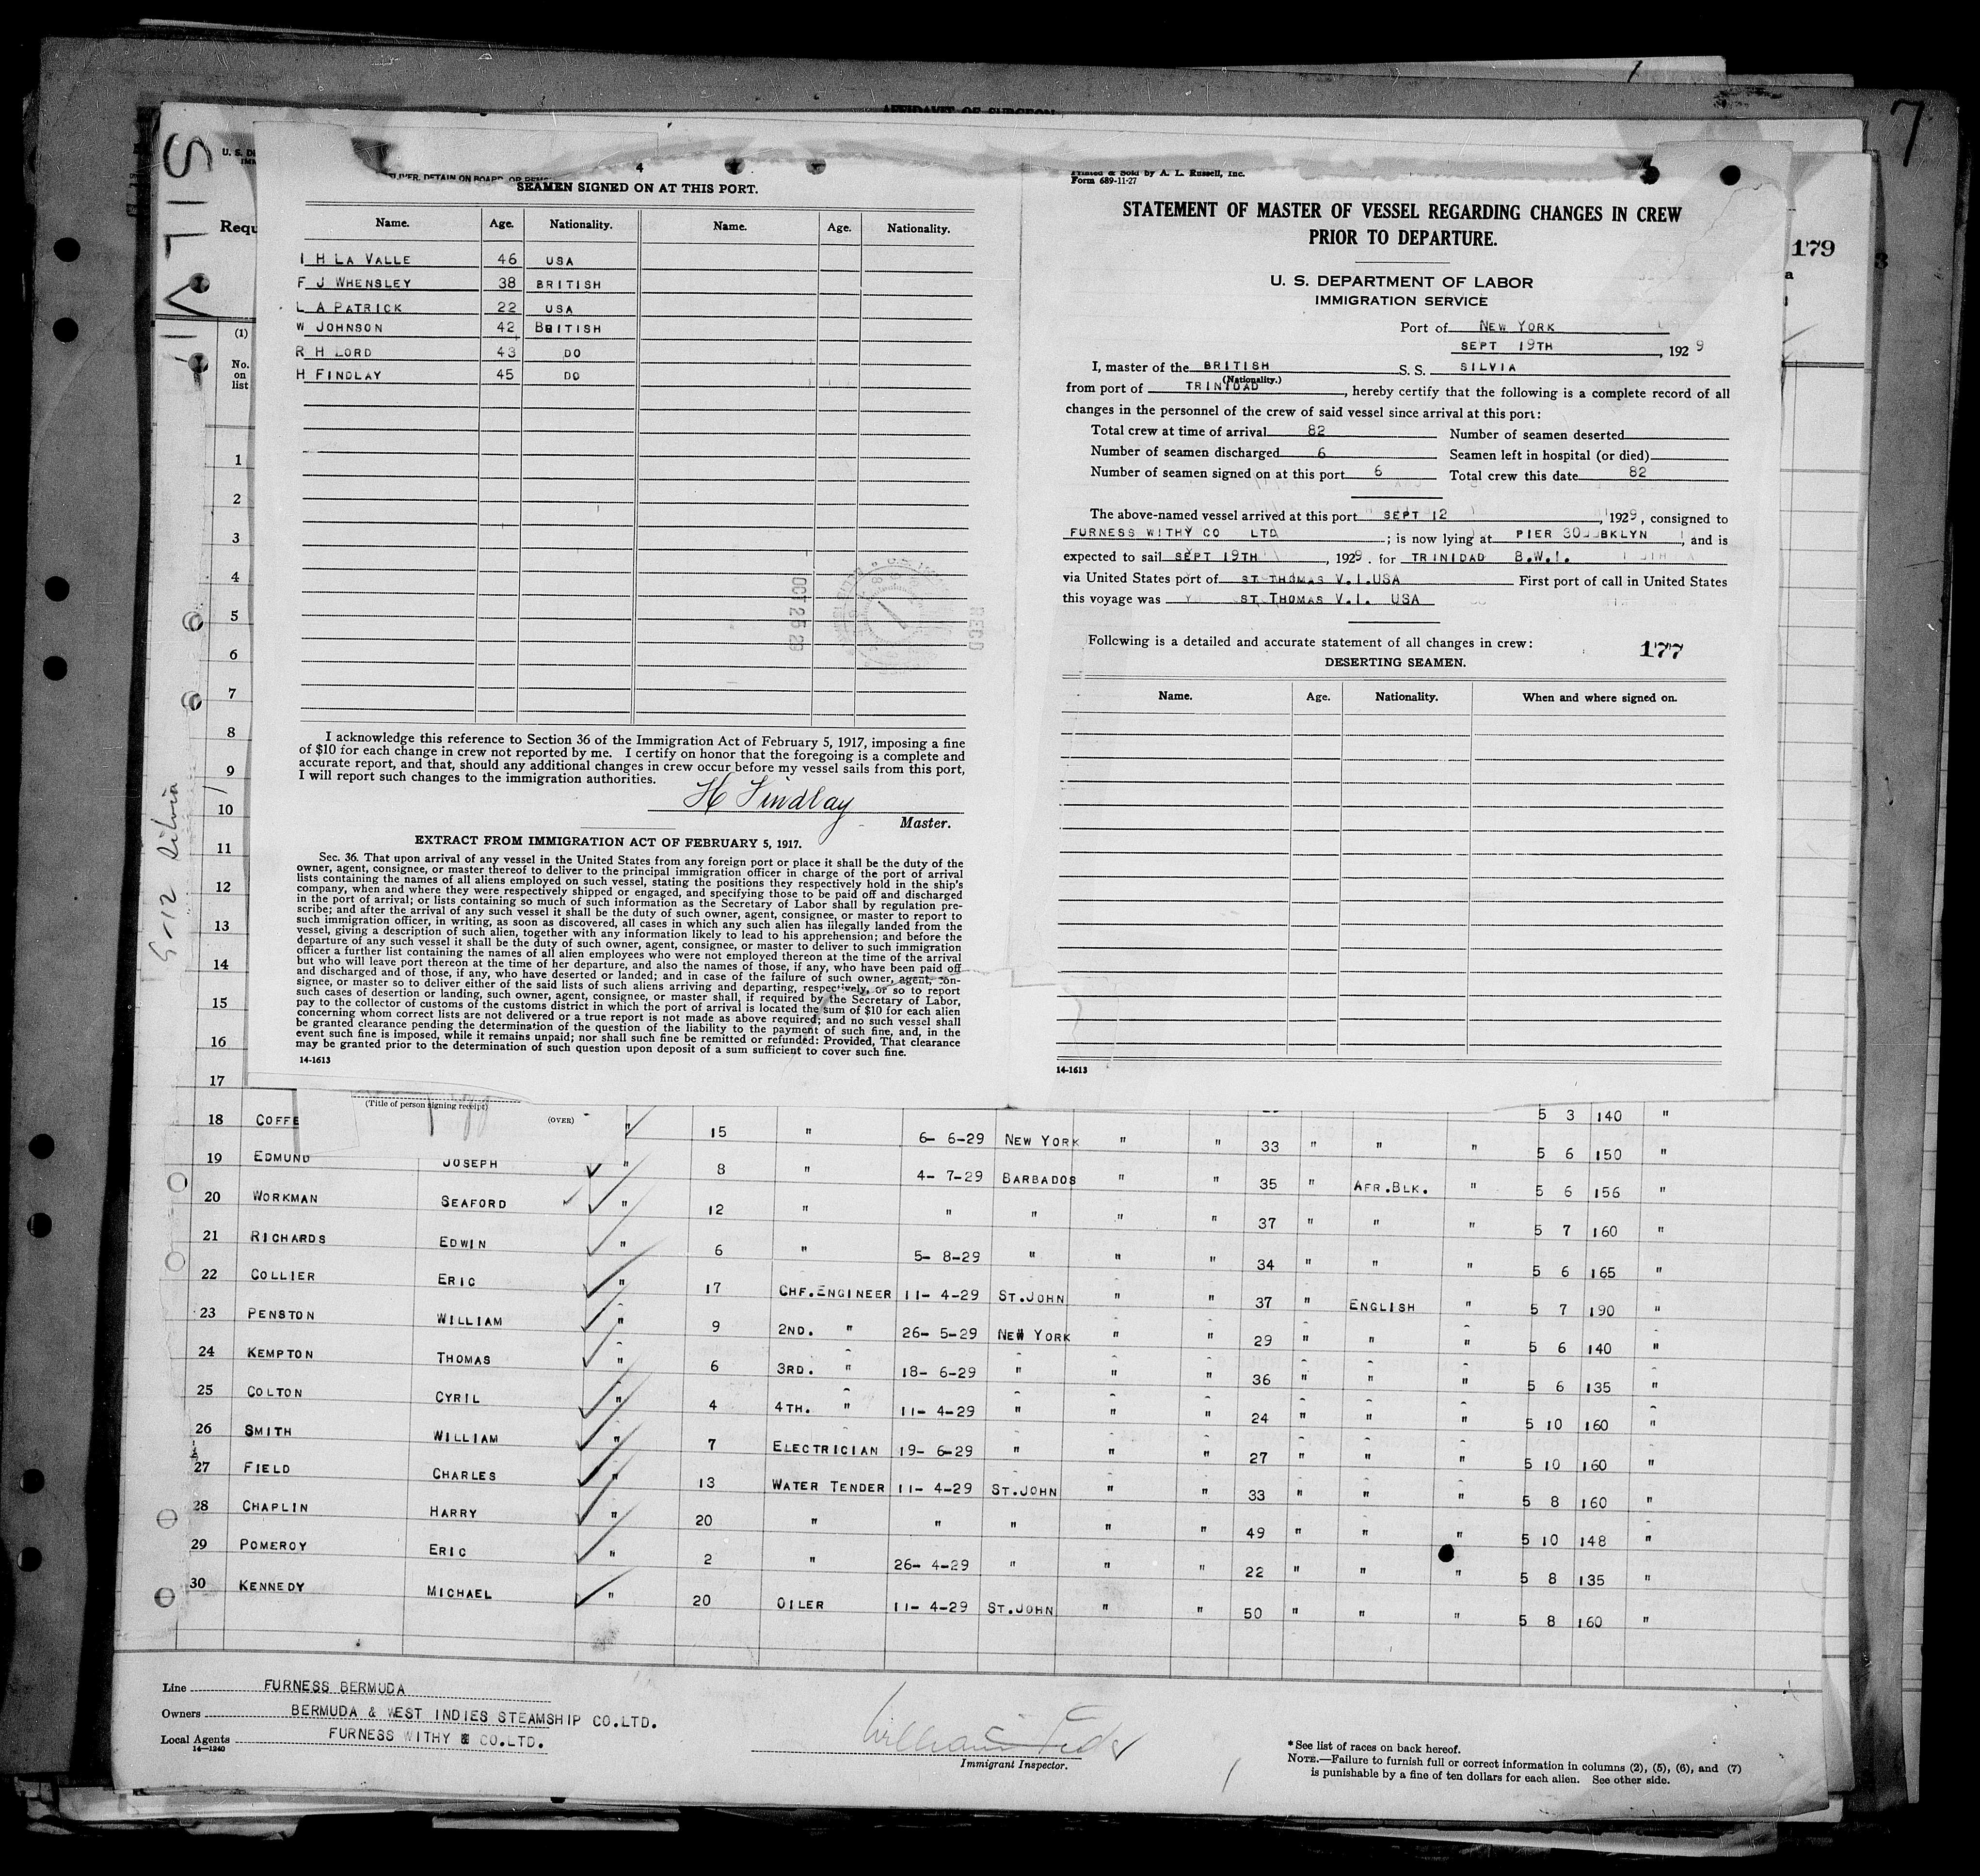 AFFIDAVIT OF SURGEON
7
SILVI
U. S. D
Requ
179
4
SEAMEN SIGNED ON AT THIS PORT.
Name. Age. Nationality. Name. Age. Nationality.
I H LA VALLE 46 USA
F J WHENSLEY 38 BRITISH
L A PATRICK 22 USA
W JOHNSON 42 BRITISH
R H LORD 43 DO
H FINDLAY 45 DO
OCT 25 29
RECD
I acknowledge this reference to Section 36 of the Immigration Act of February 5, 1917, imposing a fine
of $10 for each change in crew not reported by me. I certify on honor that the foregoing is a complete and
accurate report, and that, should any additional changes in crew occur before my vessel sails from this port,
I will report such changes to the immigration authorities.
H Findlay
Master.
EXTRACT FROM IMMIGRATION ACT OF FEBRUARY 5, 1917.
Sec. 36. That upon arrival of any vessel in the United States from any foreign port or place it shall be the duty of the
owner, agent, consignee, or master thereof to deliver to the principal immigration officer in charge of the port of arrival
lists containing the names of all aliens employed on such vessel, stating the positions they respectively hold in the ship's
company, when and where they were respectively shipped or engaged, and specifying those to be paid off and discharged
in the port of arrival; or lists containing so much of such information as the Secretary of Labor shall by regulation pre-
scribe; and after the arrival of any such vessel it shall be the duty of such owner, agent, consignee, or master to report to
such immigration officer, in writing, as soon as discovered, all cases in which any such alien has illegally landed from the
vessel, giving a description of such alien, together with any information likely to lead to his apprehension; and before the
departure of any such vessel it shall be the duty of such owner, agent, consignee, or master to deliver to such immigration
officer a further list containing the names of all alien employees who were not employed thereon at the time of the arrival
but who will leave port thereon at the time of her departure, and also the names of those, if any, who have been paid off
and discharged and of those, if any, who have deserted or landed; and in case of the failure of such owner, agent, con-
signee, or master so to deliver either of the said lists of such aliens arriving and departing, respectively, or so to report
such cases of desertion or landing, such owner, agent, consignee, or master shall, if required by the Secretary of Labor,
pay to the collector of customs of the customs district in which the port of arrival is located the sum of $10 for each alien
concerning whom correct lists are not delivered or a true report is not made as above required; and no such vessel shall
be granted clearance pending the determination of the question of the liability to the payment of such fine, and, in the
event such fine is imposed, while it remains unpaid; nor shall such fine be remitted or refunded: Provided, That clearance
may be granted prior to the determination of such question upon deposit of a sum sufficient to cover such fine.
14-1613
Printed & Sold by A. L. Russell, Inc.
Form 689-11-27
STATEMENT OF MASTER OF VESSEL REGARDING CHANGES IN CREW
PRIOR TO DEPARTURE.
U. S. DEPARTMENT OF LABOR
IMMIGRATION SERVICE
Port of NEW YORK
SEPT 19TH, 1929
I, master of the BRITISH S. S. SILVIA
(Nationality.)
from port of TRINIDAD, hereby certify that the following is a complete record of all
changes in the personnel of the crew of said vessel since arrival at this port:
Total crew at time of arrival 82 Number of seamen deserted
Number of seamen discharged 6 Seamen left in hospital (or died)
Number of seamen signed on at this port 6 Total crew this date 82
The above-named vessel arrived at this port SEPT 12, 1929, consigned to
FURNESS WITHY CO LTD; is now lying at PIER 30 BKLYN, and is
expected to sail SEPT 19TH, 1929. for TRINIDAD B.W.I.
via United States port of ST THOMAS V.I.USA First port of call in United States
this voyage was ST THOMAS V.I. USA
Following is a detailed and accurate statement of all changes in crew:
177
DESERTING SEAMEN.
Name. Age. Nationality. When and where signed on.
14-1613
(1)
No. on list
1
2
3
4
5
6
7
8
9
10
11
12
13
14
15
16
17
9-12 Silvia
(Title of person signing receipt)
(OVER)
5 3 140 "
18 COFFE " 15 " 6- 6-29 NEW YORK " " 33 " " " 5 6 150 "
19 EDMUND JOSEPH " 8 " 4- 7-29 BARBADOS " " 35 " AFR.BLK. " 5 6 156 "
20 WORKMAN SEAFORD " 12 " " " " " 37 " " " 5 7 160 "
21 RICHARDS EDWIN " 6 " 5- 8-29 " " " 34 " " " 5 6 165 "
22 COLLIER ERIC " 17 CHF.ENGINEER 11- 4-29 ST.JOHN " " 37 " ENGLISH " 5 7 190 "
23 PENSTON WILLIAM " 9 2ND. " 26- 5-29 NEW YORK " " 29 " " " 5 6 140 "
24 KEMPTON THOMAS " 6 3RD. " 18- 6-29 " " " 36 " " " 5 6 135 "
25 COLTON CYRIL " 4 4TH. " 11- 4-29 " " " 24 " " " 5 10 160 "
26 SMITH WILLIAM " 7 ELECTRICIAN 19- 6-29 " " " 27 " " " 5 10 160 "
27 FIELD CHARLES " 13 WATER TENDER 11- 4-29 ST.JOHN " " 33 " " " 5 8 160 "
28 CHAPLIN HARRY " 20 " " " " " 49 " " " 5 10 148 "
29 POMEROY ERIC " 2 " 26- 4-29 " " " 22 " " " 5 8 135 "
30 KENNEDY MICHAEL " 20 OILER 11- 4-29 ST.JOHN " " 50 " " " 5 8 160 "
Line FURNESS BERMUDA
Owners BERMUDA & WEST INDIES STEAMSHIP CO.LTD.
Local Agents FURNESS WITHY & CO.LTD.
14-1240
Immigrant Inspector.
*See list of races on back hereof.
NOTE.—Failure to furnish full or correct information in columns (2), (5), (6), and (7)
is punishable by a fine of ten dollars for each alien. See other side.